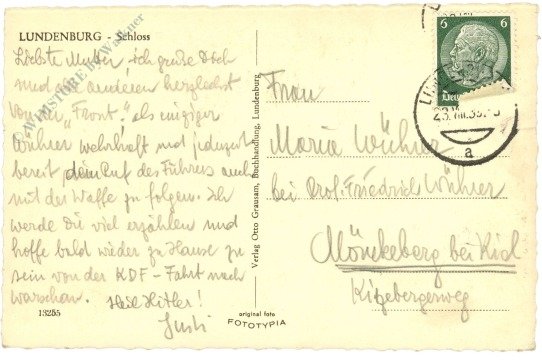 LUNDENBURG - Schloss
Liebste Mutter ich grüße Dich
und alle anderen herzlichst
von der "Front". als einziger
Wührer wehrhaft und jederzeit
bereit dem Ruf des Führers auch
mit der Waffe zu folgen. Ich
werde Dir viel erzählen und
hoffe bald wieder zu Hause zu
sein von der KDF-Fahrt nach
Warschau. Heil Hitler!
Gusti
13255
original foto
FOTOTYPIA
Verlag Otto Grausam, Buchhandlung, Lundenburg.
6 6
a
Frau
Maria Wührer
bei Prof. Friedrich Wührer
Mönckeberg bei Kiel
Kitzebergerweg